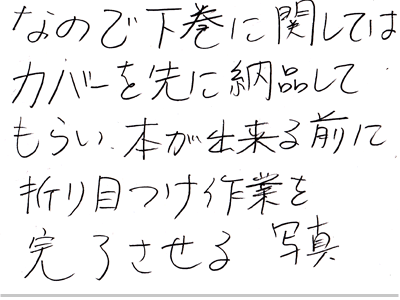 なので下巻に関しては
カバーを先に納品して
もらい、本が出来る前に
折り目つけ作業を
完了させる 写真